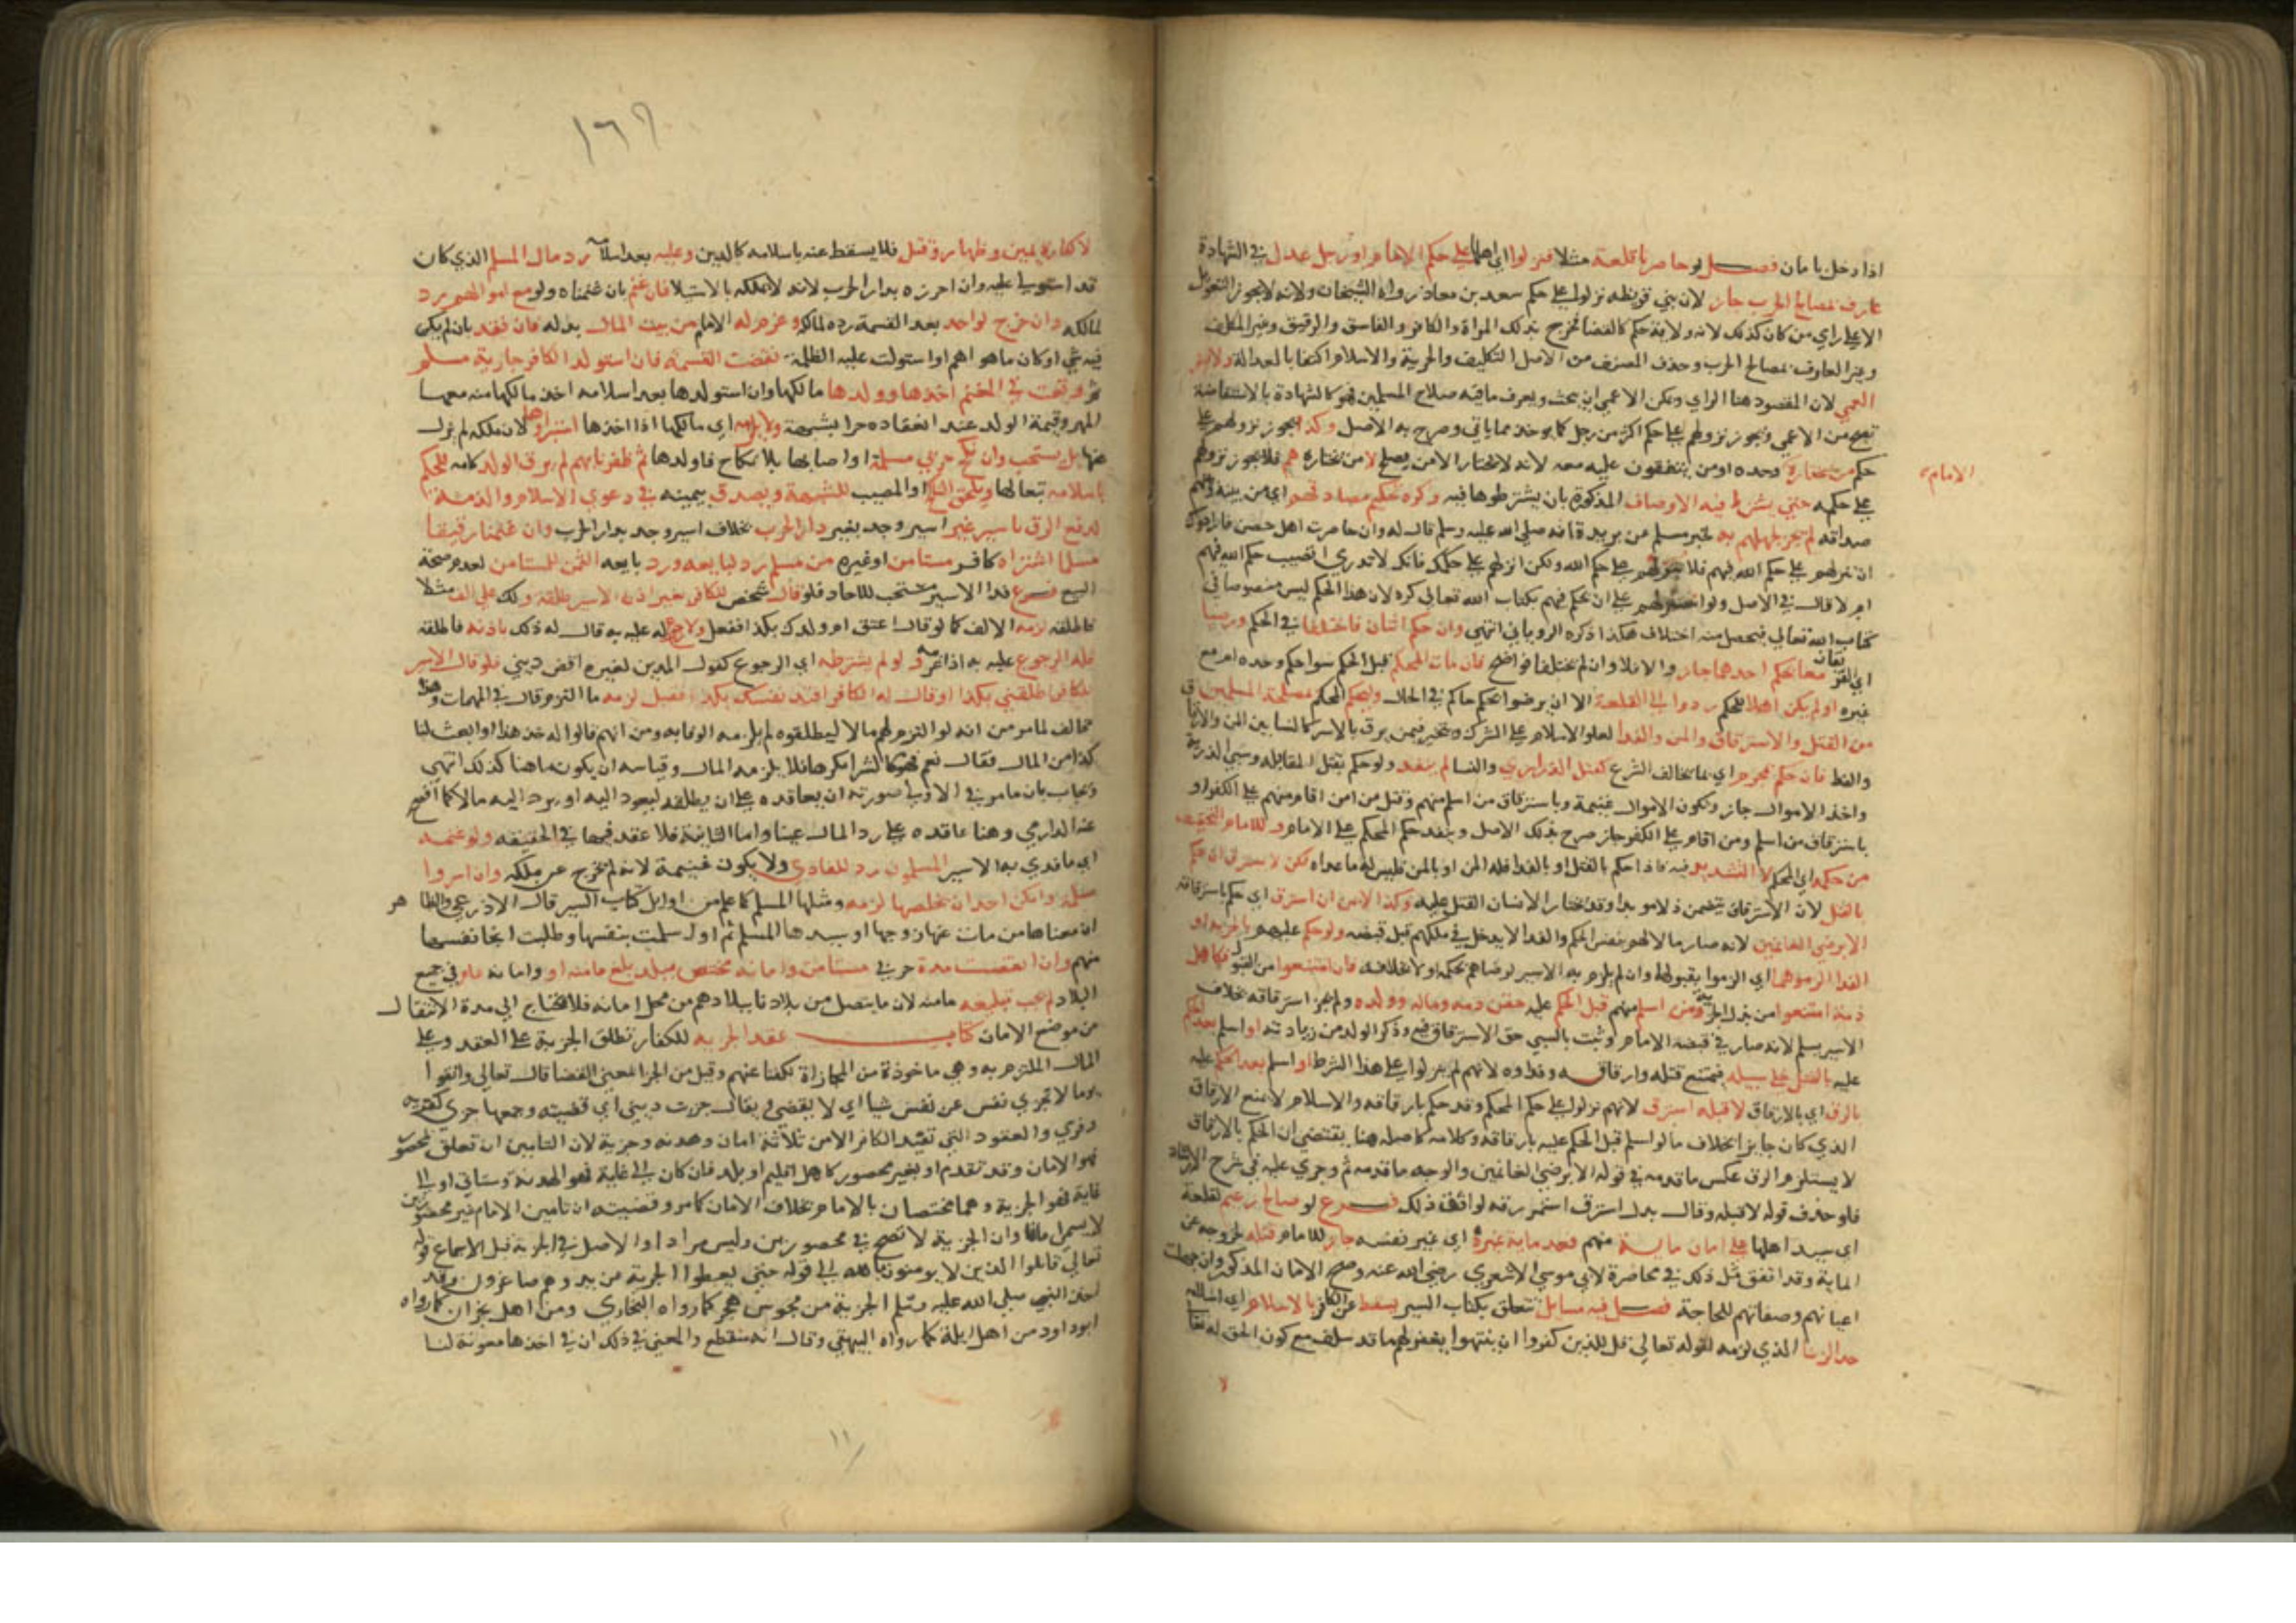 اذا دخل بامان فصل لو حاصرنا قلعة مثلا فنزلوا اي اهلها على حكم الامام او رجل عدل في الشهادة
عارف بمصالح الحرب جاز لان بني قريظة نزلوا على حكم سعد بن معاذ رواه الشيخان ولانه لا يجوز
الا على راي من كان كذلك لانه ولاية حكم كالقضا فخرج بذلك المراة والكافر والفاسق والرقيق وغير المكلف
وغير العارف بمصالح الحرب وحذف المصنف من الاصل التكليف والحرية والاسلام اكتفا بالعدالة ولا يضر
العمي لان المقصود هنا الراي ويمكن الاعمى ان يبحث ويعرف ما فيه صلاح المسلمين فهو كالشهادة بالاستفاضة
تصح من الاعمى ويجوز نزولهم على حكم اكثر من رجل كما يوخذ مما ياتي وصرح به الاصل وكذا يجوز نزولهم على
حكم من يختاره وحده او من يتفقون عليه معه لانه لا يختار الا من يصلح لا من يختاره هم فلا يجوز نزولهم
الامام
على حكمه حتى يشرط فيه الاوصاف المذكورة بان يشترطوها فيه وكره تحكيم مصادقهم اي من بينه وبينهم
صداقة لم يجز لهم به لخبر مسلم عن بريدة انه صلى الله عليه وسلم قال له وان حاصرت اهل حصن فارادوك
ان تنزلهم على حكم الله فيهم فلا تنزلهم على حكم الله ولكن انزلهم على حكمك فانك لا تدري اتصيب حكم الله فيهم
ام لا قال في الاصل ولو استنزلهم على ان يحكم فيهم بكتاب الله تعالى كره لان هذا الحكم ليس منصوصا في
كتاب الله تعالى فيحصل منه اختلاف هكذا ذكره الروياني انتهى وان حكم اثنان فاختلفا في الحكم ورضيا
اي الفريقان معا بحكم احدهما جاز والا فلا وان لم يختلفا فواضح فان مات المحكم قبل الحكم سوا حكم وحده ام مع
غيره او لم يكن اهلا للحكم ردوا الى القلعة الا ان يرضوا بحكم حاكم في الحال وليحكم المحكم بمصلحة المسلمين
من القتل والاسترقاق والمن والفدا لعلو الاسلام على الشرك ويتخير فيمن يرق بالاسر كالنسا بين المن والارقاق
والفدا فان حكم بمحرم اي بما يخالف الشرع كقتل الذراري والنسا لم ينفذ ولو حكم بقتل المقاتلة وسبي الذرية
واخذ الاموال جاز وتكون الاموال غنيمة وباسترقاق من اسلم منهم وقتل من اقام منهم على الكفر او
باسترقاق من اسلم ومن اقام على الكفر جاز صرح بذلك الاصل وينفذ حكم المحكم على الامام وللامام التخفيف
من حكمه اي المحكم لا التشديد فيه فاذا حكم بالقتل او بالفدا فله المن او بالمن فليس له ما عداه لكن لا يسترق ان حكم
بالقتل لان الاسترقاق يتضمن ذلا موبدا وقد يختار الانسان القتل عليه وكذا لا يمن ان استرق اي حكم باسترقاقه
الا برضى الغانمين لانه صار مالا لهم بنفس الحكم والفدا لا يدخل في ملكهم قبل قبضه ولو حكم عليهم بالجزية او
الفدا الزموهما اي الزموا بقبولهما وان لم يلزم به الاسير لرضاهم بحكمه اولا بخلافه فان امتنعوا من القبول فكاهل
ذمة امتنعوا من بذل الجزية ومن اسلم منهم قبل الحكم عليه حقن دمه وماله وولده ولم يجز استرقاقه بخلاف
الاسير يسلم لانه صار في قبضة الامام وثبت بالسبي حق الاسترقاق فيه وذكر الولد من زيادته او اسلم بعد الحكم
عليه بالقتل خلي سبيله فيمتنع قتله وارقاقه وفداوه لانهم لم ينزلوا على هذا الشرط او اسلم بعد الحكم عليه
بالرق اي بالارقاق لا قبله استرق لانهم نزلوا على حكم المحكم وقد حكم بارقاقه والاسلام لا يمنع الارقاق
الذي كان جايزا بخلاف ما لو اسلم قبل الحكم عليه بارقاقه وكلامه كاصله هنا يقتضي ان الحكم بالارقاق
لا يستلزم الرق عكس ما قدمه في قوله الا برضى الغانمين والوجه ما قدمه ثم وجرى عليه في شرح الارشاد
فلو حذف قوله لا قبله وقال بدل استرق استمر رقه لوافق ذلك فرع لو صالح زعيم لقلعة
اي سيد اهلها على امان ماية منهم فعد ماية غيره اي غير نفسه جاز للامام قتله لخروجه عن
الماية وقد اتفق مثل ذلك في محاصرة لابي موسى الاشعري رضي الله عنه وصح الامان المذكور وان جهلت
اعيانهم وصفاتهم للحاجة فصل فيه مسايل تتعلق بكتاب السير يسقط عن الكافر بالاسلام اي اسلامه
حد الزنا الذي لزمه لقوله تعالى قل للذين كفروا ان ينتهوا يغفر لهم ما قد سلف مع كون الحق له تعالى
لا
١٦٩
لا كفارة يمين وظهار وقتل فلا يسقط عنه باسلامه كالدين وعليه بعد اسلامه رد مال المسلم الذي كان
قد استولى عليه وان احرزه بدار الحرب لانه لا يملكه بالاستيلا فان غنم بان غنمناه ولو مع اموالهم رد
لمالكه وان خرج لواحد بعد القسمة رده لمالكه وغرم له الامام من بيت المال بدله فان فقد بان لم يكن
فيه شي او كان ما هو اهم او استولت عليه الظلمة نقضت القسمة فان استولد الكافر جارية مسلم
ثم وقعت في المغنم اخذها وولدها مالكها وان استولدها بعد اسلامه اخذ مالكها منه معها
المهر وقيمة الولد عند انعقاده حرا بشبهة ولا يلزمه اي مالكها اذا اخذها استبراوها لان ملكه لم يزل
عنها بل يستحب وان نكح حربي مسلمة او اصابها بلا نكاح فاولدها ثم ظفرنا بهم لم يرق الولد كامه للحكم
باسلامه تبعا لها ويلحق الناكح او المصيب للشبهة ويصدق بيمينه في دعوى الاسلام والذمة
لدفع الرق اسير غير اسير وجد بغير دار الحرب بخلاف اسير وجد بدار الحرب وان غلمنا رقيقا
مسلما اشتراه كافر مستامن او غيره من مسلم رد لبايعه ورد بايعه الثمن للمستامن لعدم صحة
البيع فرع فدا الاسير مستحب للاحاد فلو قال شخص للكافر بغير اذن الاسير اطلقه ولك علي الف مثلا
فاطلقه لزمه الالف كما لو قال اعتق ام ولدك بكذا ففعل ولا رجوع له عليه به قال له ذلك باذنه فاطلقه
فله الرجوع عليه به اذا غرمه ولو لم يشرطه اي الرجوع كقول المدين لغيره اقض ديني فلو قال الاسير
للكافر اطلقني بكذا او قال له الكافر افتد نفسك بكذا فقبل لزمه ما التزم قال في المهمات وهذا
مخالف لما مر من انه لو التزم لهم مالا ليطلقوه لم يلزمه الوفا به ومن انهم قالوا له خذ هذا وابعث لنا
كذا من المال فقال نعم فهو كالشرا مكرها فلا يلزمه المال وقياسه ان يكون ما هنا كذلك انتهى
ويجاب بان ما مر في الاولى صورته ان يعاقده على ان يطلقه ليعود اليه او يرد اليه مالا كما افصح
عنه الدارمي وهنا عاقده على رد المال عينا واما الثانية فلا عقد فيها في الحقيقة ولو غنمه
اي ما فدي به الاسير المسلمون رد للفادي ولا يكون غنيمة لانه لم يخرج عن ملكه وان اسروا
مسلمة وامكن احدا ان يخلصها لزمه ومثلها المسلم كما علم من اوايل كتاب السير قال الاذرعي والظاهر
ان معناها من مات عنها زوجها او سيدها المسلم ثم اول سلمت بنفسها وطلبت الحا نفسها
منهم وان انقضت مدة حربي مستامن وامانه مختص ببلد بلغ مامنه او وامانه عام في جميع
البلاد لم يجب تبليغه مامنه لان ما يتصل من بلادنا ببلادهم من محل امانه فلا يحتاج الى مدة الانتقال
من موضع الامان كتاب عقد الجزية للكفار تطلق الجزية على العقد وعلى
المال الملتزم به وهي ماخوذة من المجازاة لكفنا عنهم وقيل من الجزا بمعنى القضا قال تعالى واتقوا
يوما لا تجزي نفس عن نفس شيا اي لا تقضي ويقال جزيت ديني اي قضيته وجمعها جزى كقرية
وقرى والعقود التي تفيد الكافر الامن ثلاثة امان وهدنة وجزية لان التامين ان تعلق بمحصور
فهو الامان وقد تقدم او بغير محصور كاهل اقليم او بلد فان كان الى غاية فهو الهدنة وستاتي او لا الى
غاية فهو الجزية وهما مختصان بالامام بخلاف الامان كما مر وقضيته ان تامين الامام غير محصورين
لا يسمى امانا وان الجزية لا تصح في محصورين وليس مرادا والاصل في الجزية قبل الاجماع قوله
تعالى قاتلوا الذين لا يومنون بالله الى قوله حتى يعطوا الجزية عن يد وهم صاغرون وقد
اخذ النبي صلى الله عليه وسلم الجزية من مجوس هجر كما رواه البخاري ومن اهل نجران كما رواه
ابو داود من اهل ايلة كما رواه البيهقي وقال انه منقطع والمعنى في ذلك ان في اخذها معونة لنا
١١